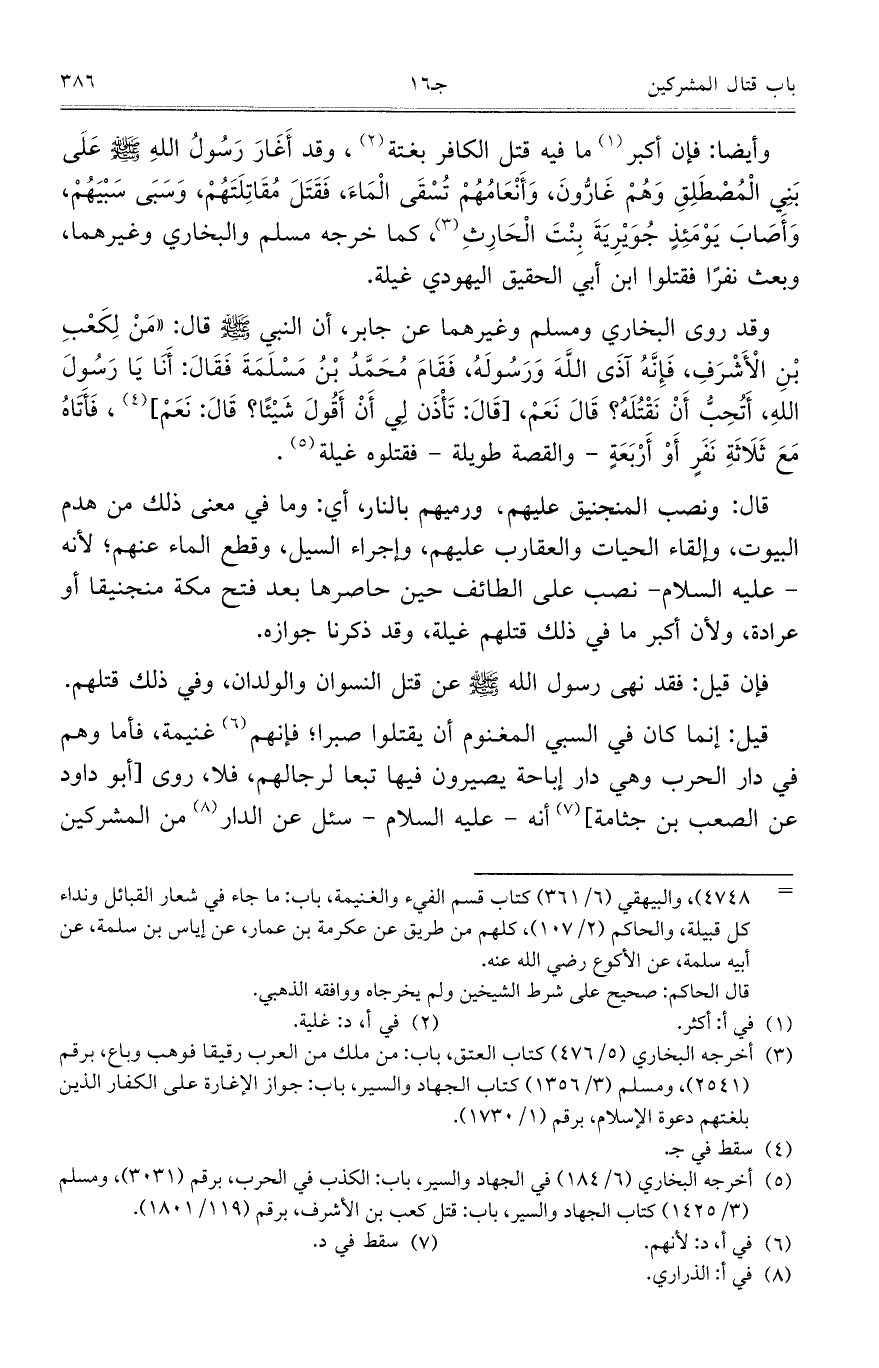 باب قتال المشركين جـ١٦ ٣٨٦
وأيضا: فإن أكبر(١) ما فيه قتل الكافر بغتة(٢)، وقد أَغَارَ رَسُولُ اللهِ ﷺ عَلَى
بَنِي الْمُصْطَلِقِ وَهُمْ غَارُّونَ، وَأَنْعَامُهُمْ تُسْقَى الْمَاءَ، فَقَتَلَ مُقَاتِلَتَهُمْ، وَسَبَى سَبْيَهُمْ،
وَأَصَابَ يَوْمَئِذٍ جُوَيْرِيَةَ بِنْتَ الْحَارِثِ(٣)، كما خرجه مسلم والبخاري وغيرهما،
وبعث نفرًا فقتلوا ابن أبي الحقيق اليهودي غيلة.
وقد روى البخاري ومسلم وغيرهما عن جابر، أن النبي ﷺ قال: «مَنْ لِكَعْبِ
بْنِ الْأَشْرَفِ، فَإِنَّهُ آذَى اللَّهَ وَرَسُولَهُ، فَقَامَ مُحَمَّدُ بْنُ مَسْلَمَةَ فَقَالَ: أَنَا يَا رَسُولَ
اللهِ، أَتُحِبُّ أَنْ نَقْتُلَهُ؟ قَالَ نَعَمْ، [قَالَ: تَأْذَن لِي أَنْ أَقُولَ شَيْئًا؟ قَالَ: نَعَمْ](٤)، فَأَتَاهُ
مَعَ ثَلَاثَةِ نَفَرٍ أَوْ أَرْبَعَةٍ - والقصة طويلة - فقتلوه غيلة(٥).
قال: ونصب المنجنيق عليهم، ورميهم بالنار، أي: وما في معنى ذلك من هدم
البيوت، وإلقاء الحيات والعقارب عليهم، وإجراء السيل، وقطع الماء عنهم؛ لأنه
- عليه السلام- نصب على الطائف حين حاصرها بعد فتح مكة منجنيقا أو
عرادة، ولأن أكبر ما في ذلك قتلهم غيلة، وقد ذكرنا جوازه.
فإن قيل: فقد نهى رسول الله ﷺ عن قتل النسوان والولدان، وفي ذلك قتلهم.
قيل: إنما كان في السبي المغنوم أن يقتلوا صبرا؛ فإنهم(٦) غنيمة، فأما وهم
في دار الحرب وهي دار إباحة يصيرون فيها تبعا لرجالهم، فلا، روى [أبو داود
عن الصعب بن جثامة](٧) أنه - عليه السلام - سئل عن الدار(٨) من المشركين
= ٤٧٤٨)، والبيهقي (٦/ ٣٦١) كتاب قسم الفيء والغنيمة، باب: ما جاء في شعار القبائل ونداء
كل قبيلة، والحاكم (٢/ ١٠٧)، كلهم من طريق عن عكرمة بن عمار، عن إياس بن سلمة، عن
أبيه سلمة، عن الأكوع رضي الله عنه.
قال الحاكم: صحيح على شرط الشيخين ولم يخرجاه ووافقه الذهبي.
(١) في أ: أكثر. (٢) في أ، د: غلية.
(٣) أخرجه البخاري (٥/ ٤٧٦) كتاب العتق، باب: من ملك من العرب رقيقا فوهب وباع، برقم
(٢٥٤١)، ومسلم (٣/ ١٣٥٦) كتاب الجهاد والسير، باب: جواز الإغارة على الكفار الذين
بلغتهم دعوة الإسلام، برقم (١/ ١٧٣٠).
(٤) سقط في جـ.
(٥) أخرجه البخاري (٦/ ١٨٤) في الجهاد والسير، باب: الكذب في الحرب، برقم (٣٠٣١)، ومسلم
(٣/ ١٤٢٥) كتاب الجهاد والسير، باب: قتل كعب بن الأشرف، برقم (١١٩/ ١٨٠١).
(٦) في أ، د: لأنهم. (٧) سقط في د.
(٨) في أ: الذراري.